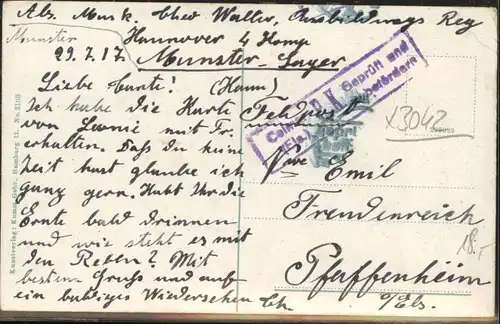 Abs. Musk. Theo Walter, Ausbildungs Reg
Hannover 4 Komp
Munster
29.7.17. Munster-Lager
(Hann)
Liebe Tante!
Ich habe die Karte
von Leonie mit Fr.
erhalten. Daß du keine
Zeit hast glaube ich
ganz gern. Habt Ihr die
Ernte bald drinnen
und wie steht es mit
den Reben? Mit
bestem Gruß und auf
ein baldiges Wiedersehen Th.
Feldpost
P. K.
Geprüft und
zu befördern
(Els.)
x3042
Emil
Freudenreich
Pfaffenheim
o/Els.
18.-
Kunstverlag: Hamburg 11. No. 2103